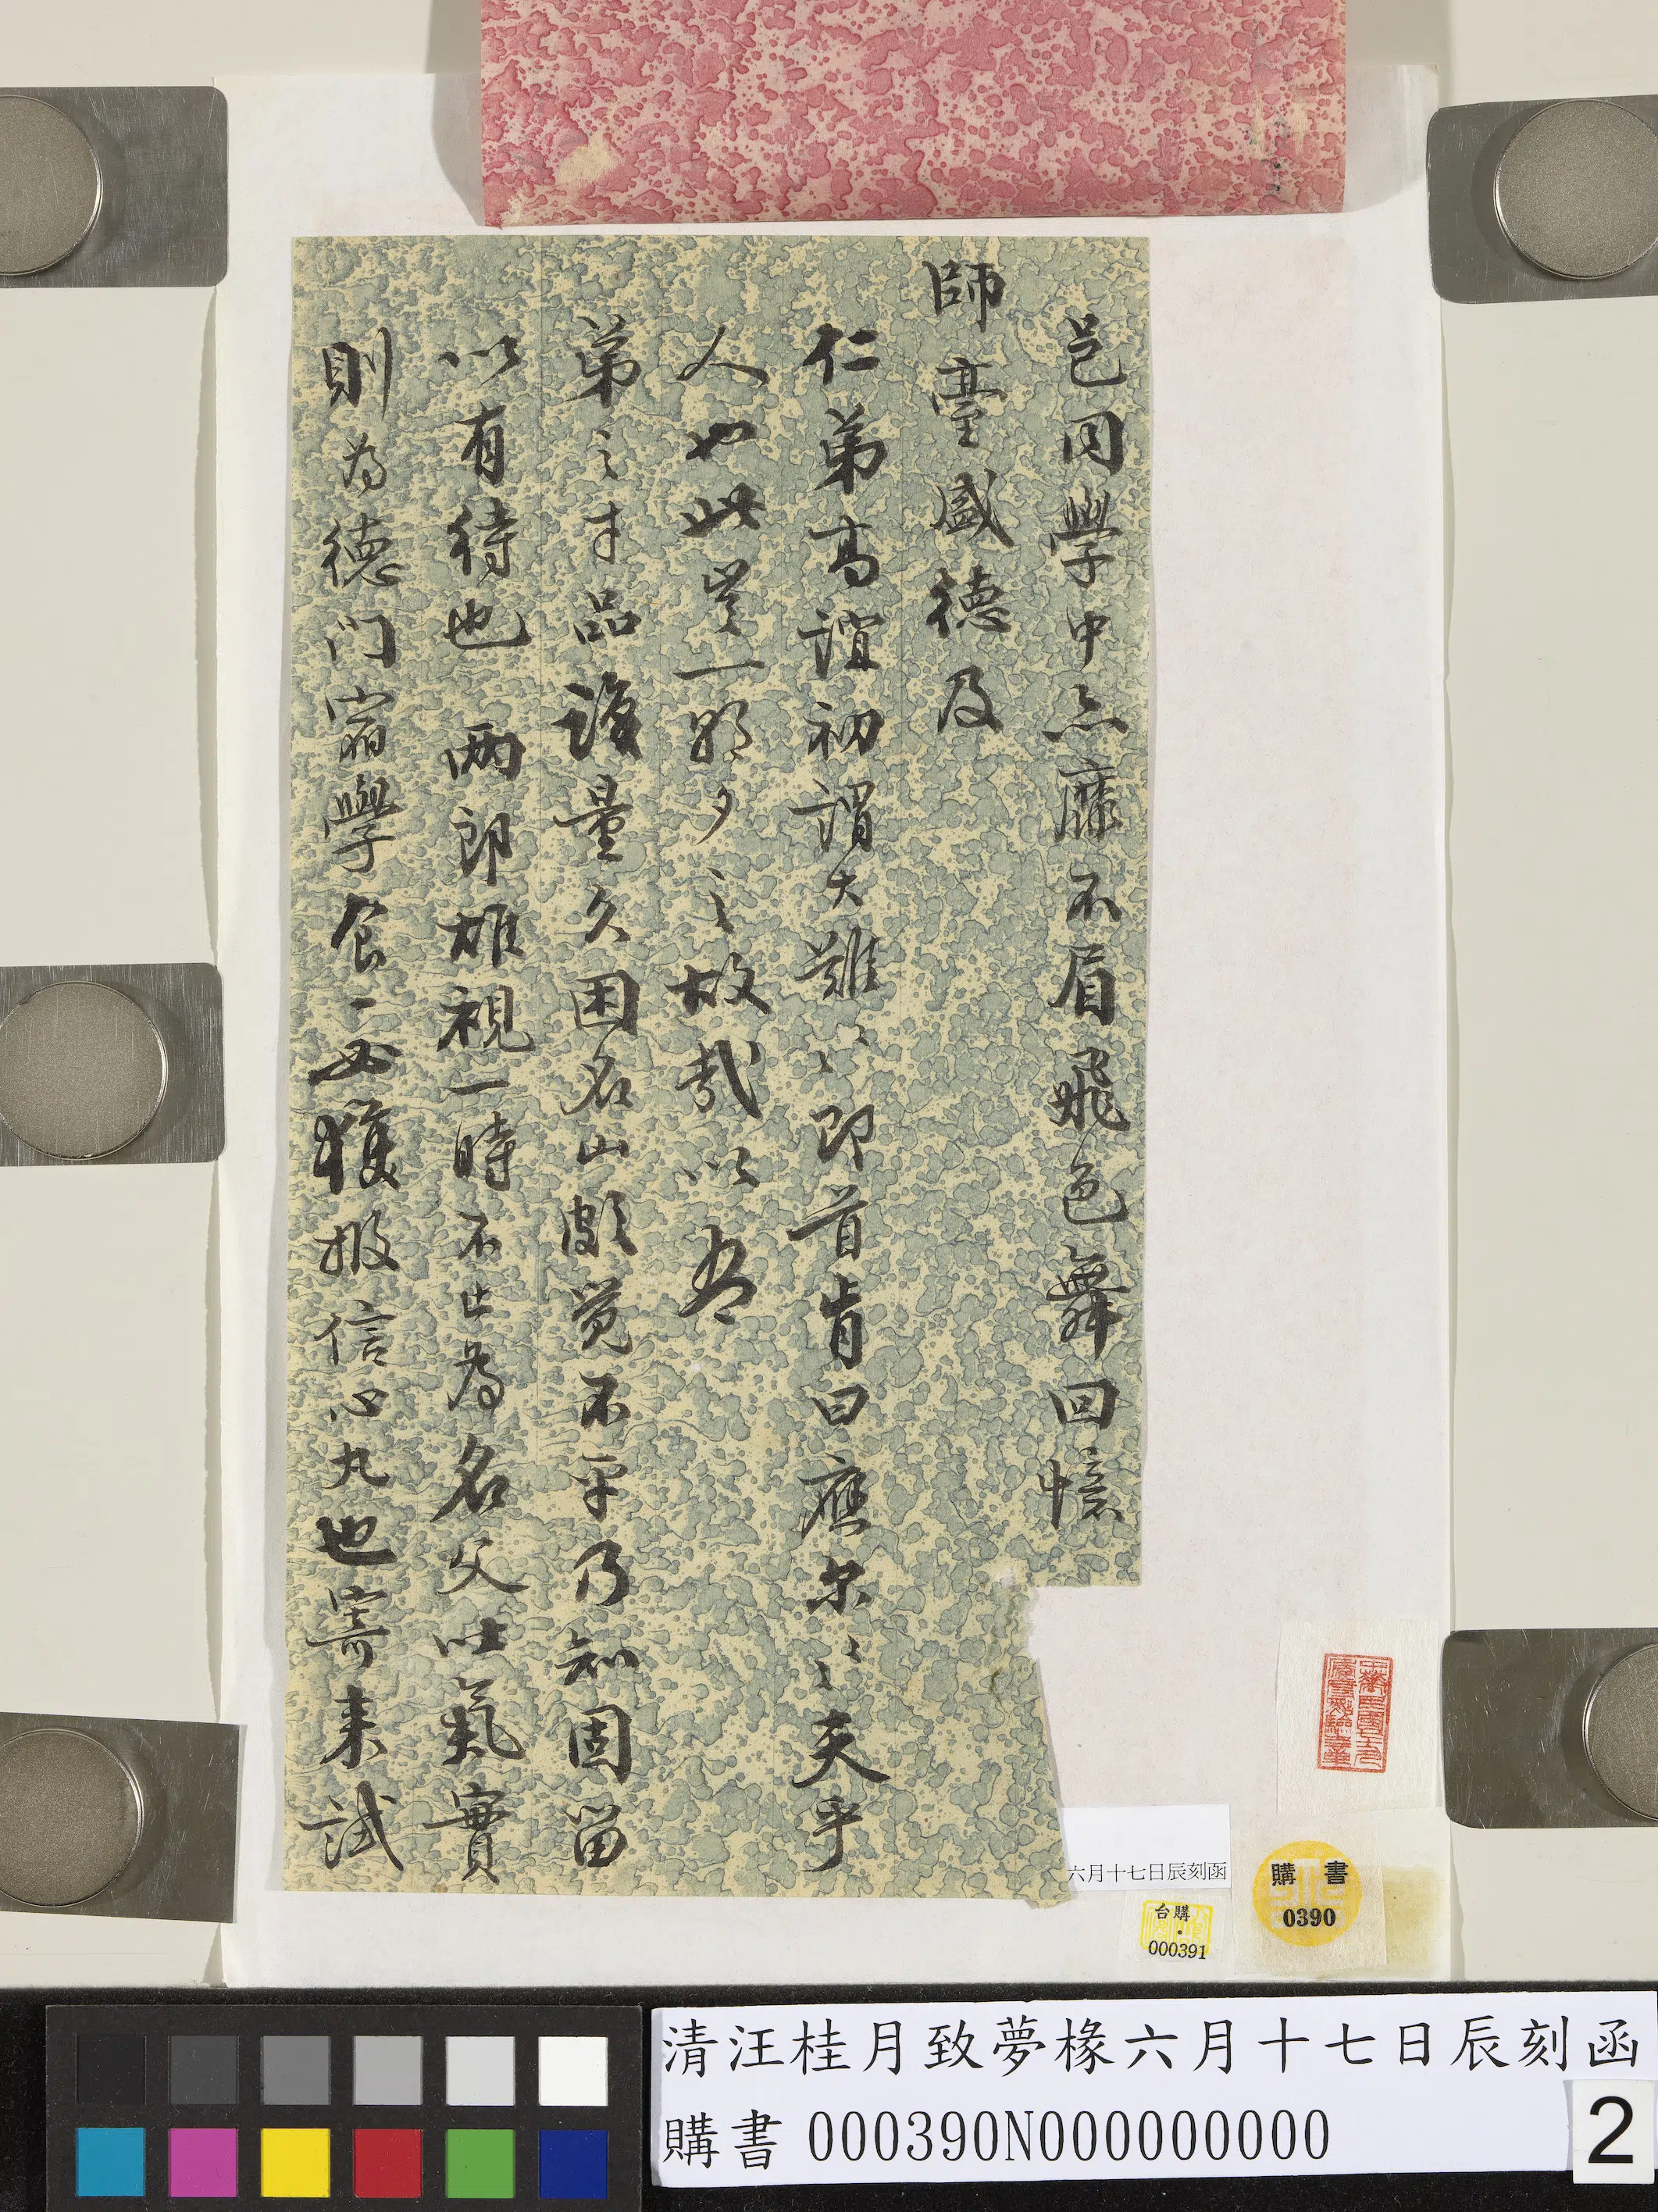 邑同學中亦靡不眉飛色舞回憶
師臺盛德及
仁弟高誼初謂大難〻即首肯曰應尔〻夫乎
人也此豈一朝夕之故哉以吾
弟之才品識量久困名山頗覺不平乃知固留
以有待也兩郎雄視一時不止為名父吐氣實
則為德門宿學食一必獲報信心丸也寄來試
六月十七日辰刻函
購書
0390
台購
000391
清汪桂月致夢椽六月十七日辰刻函
購書 000390N000000000
2